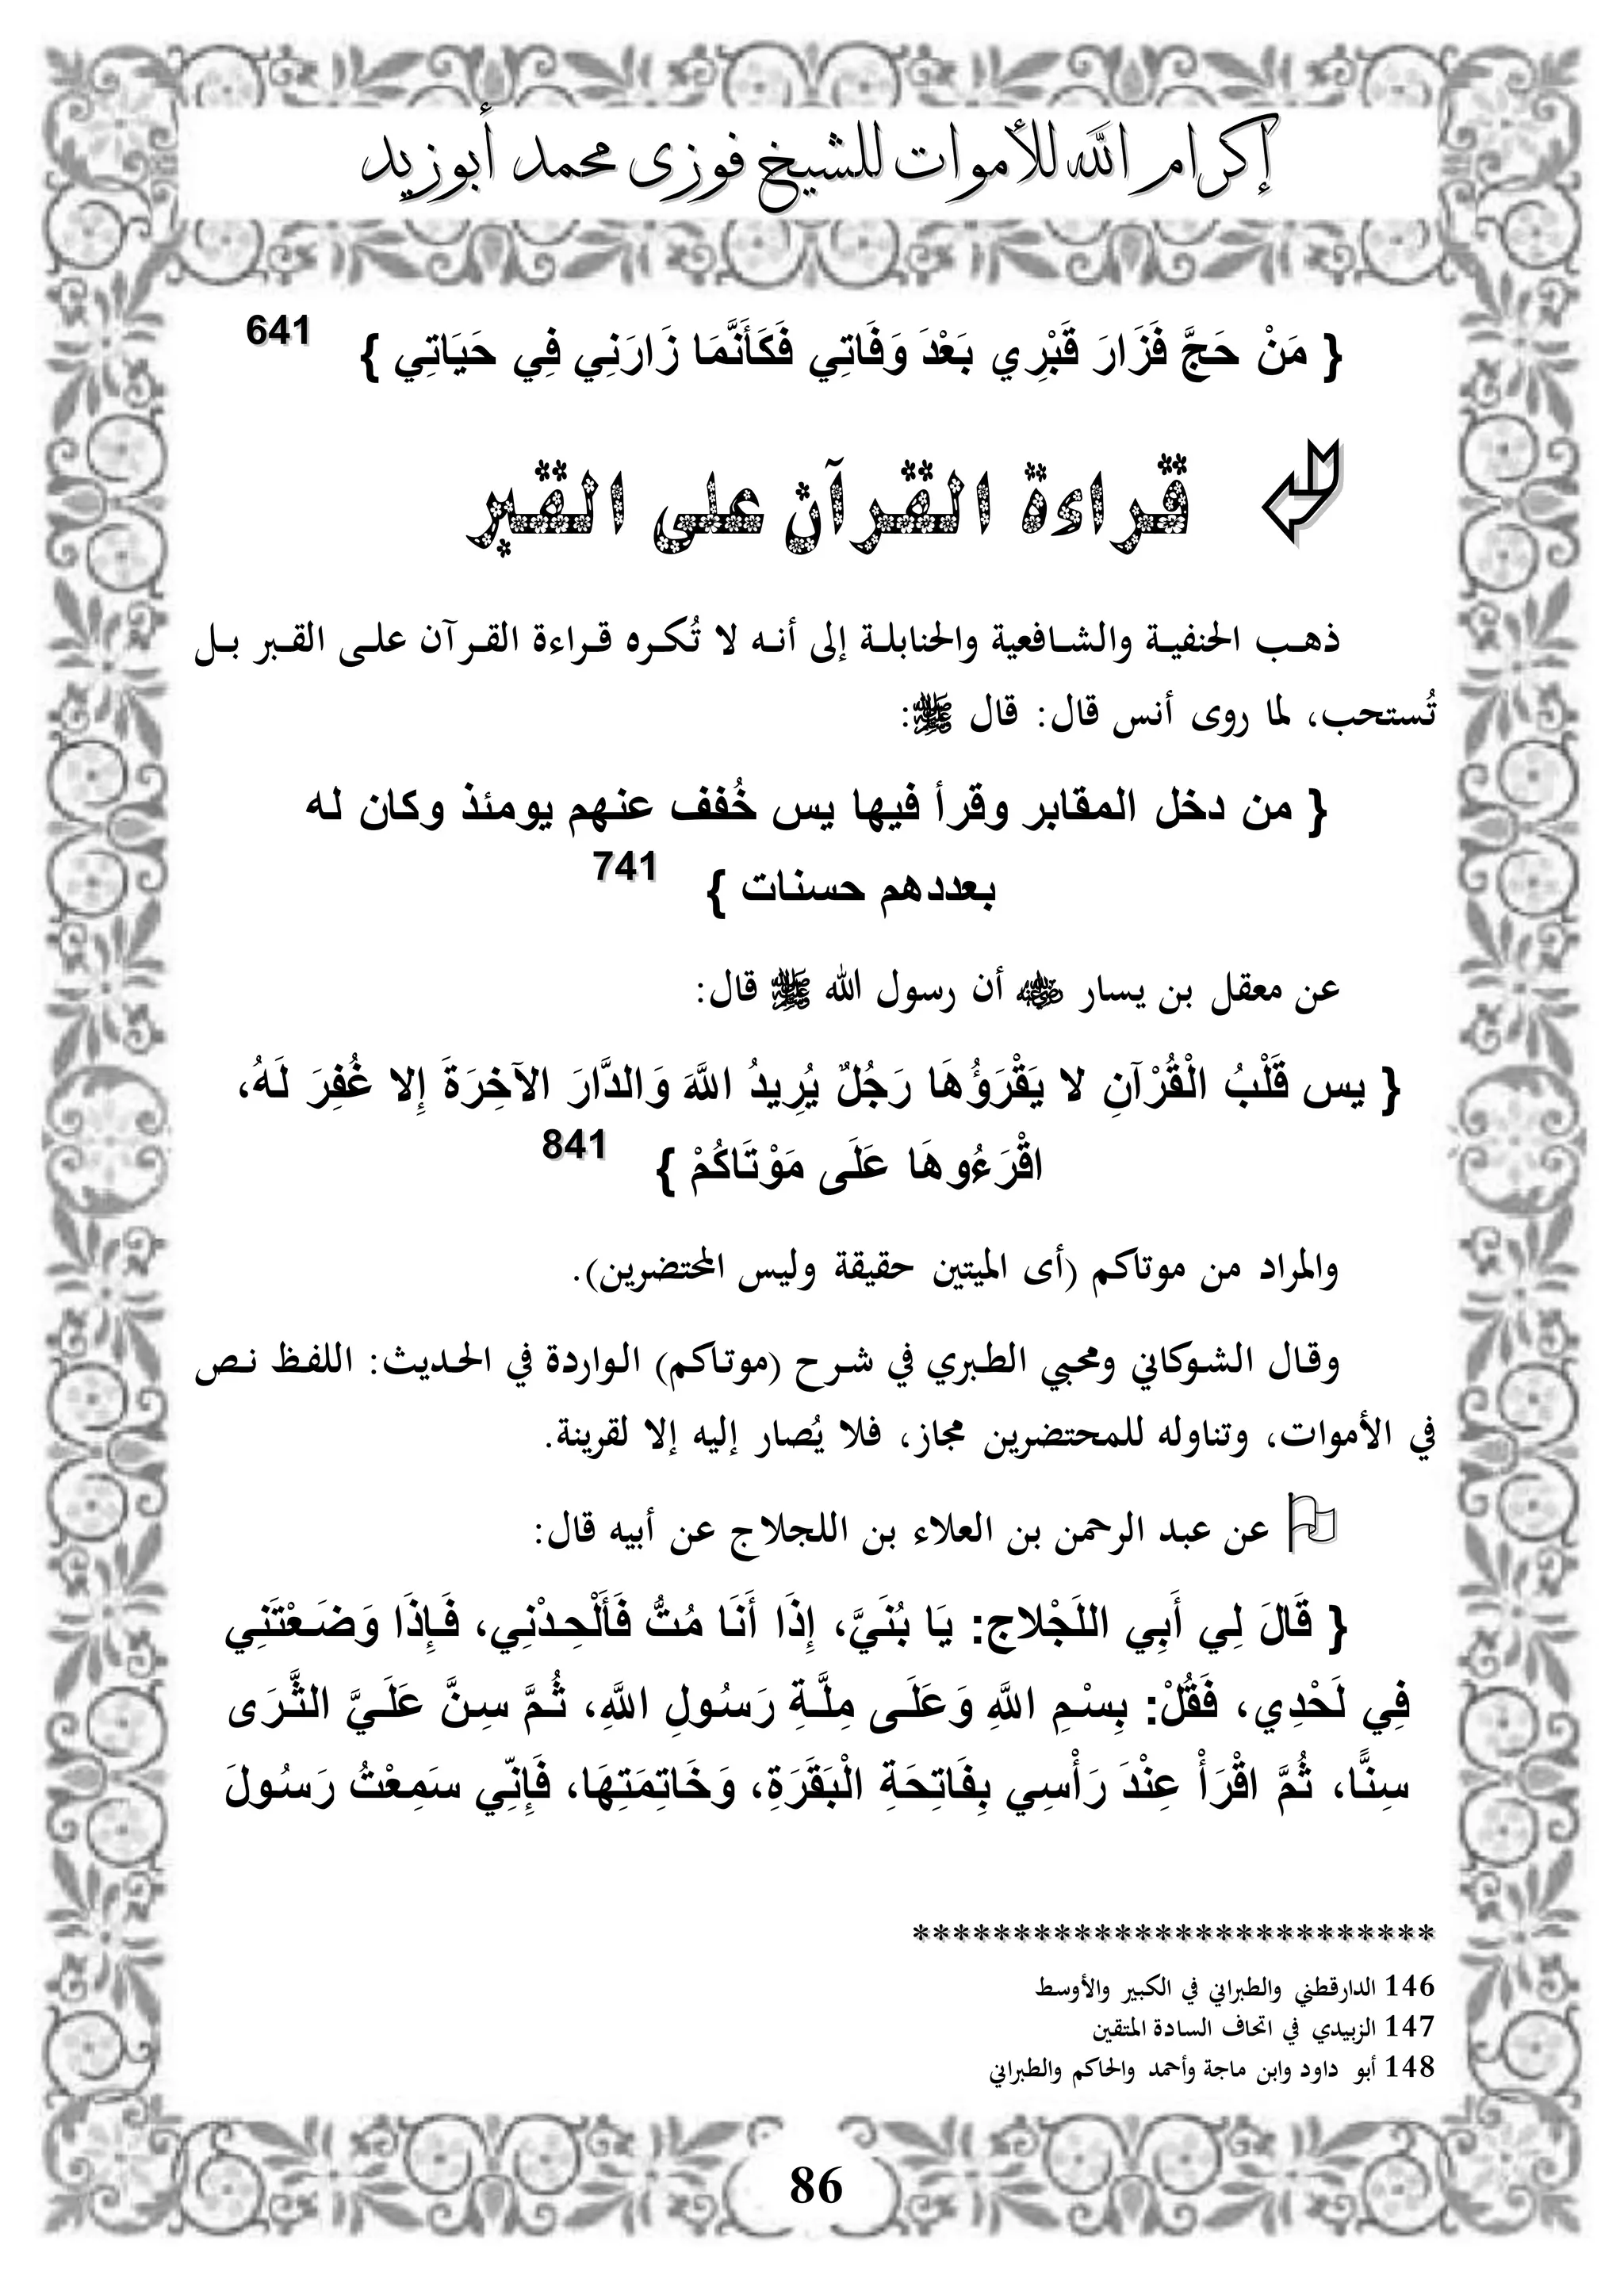 إكرام الله للأموات للشيخ فوزى محمد أبوزيد
{ مَنْ حَجَّ فَزَارَ قَبْرِي بَعْدَ وَفَاتِي فَكَأَنَّمَا زَارَنِي فِي حَيَاتِي } 641
قراءة القرآن على القبر
ذهب الحنفية والشافعية والحنابلة إلى أنه لا تُكره قراءة القرآن على القبر بل
تُستحب، لما روى أنس قال: قال ﷺ:
{ من دخل المقابر وقرأ فيها يس خُفف عنهم يومئذ وكان له
بعددهم حسنات } 741
عن معقل بن يسار ﵁ أن رسول الله ﷺ قال:
{ يس قَلْبُ الْقُرْآنِ لا يَقْرَؤُهَا رَجُلٌ يُرِيدُ اللَّهَ وَالدَّارَ الآخِرَةَ إِلا غُفِرَ لَهُ،
اقْرَءُوهَا عَلَى مَوْتَاكُمْ } 841
والمراد من موتاكم (أى الميتين حقيقة وليس المحتضرين).
وقال الشوكاني ومحيي الطبري في شرح (موتاكم) الواردة في الحديث: اللفظ نص
في الأموات، وتناوله للمحتضرين مجاز، فلا يُصار إليه إلا لقرينة.
عن عبد الرحمن بن العلاء بن اللجلاج عن أبيه قال:
{ قَالَ لِي أَبِي اللَجْلاج: يَا بُنَيَّ، إِذَا أَنَا مُتُّ فَأَلْحِدْنِي، فَإِذَا وَضَعْتَنِي
فِي لَحْدِي، فَقُلْ: بِسْمِ اللَّهِ وَعَلَى مِلَّةِ رَسُولِ اللَّهِ، ثُمَّ سِنَّ عَلَيَّ الثَّرَى
سِنًّا، ثُمَّ اقْرَأْ عِنْدَ رَأْسِي بِفَاتِحَةِ الْبَقَرَةِ، وَخَاتِمَتِهَا، فَإِنِّي سَمِعْتُ رَسُولَ
**************************
146 الدارقطني والطبراني في الكبير والأوسط
147 الزبيدي في اتحاف السادة المتقين
148 أبو داود وابن ماجة وأحمد والحاكم والطبراني
86